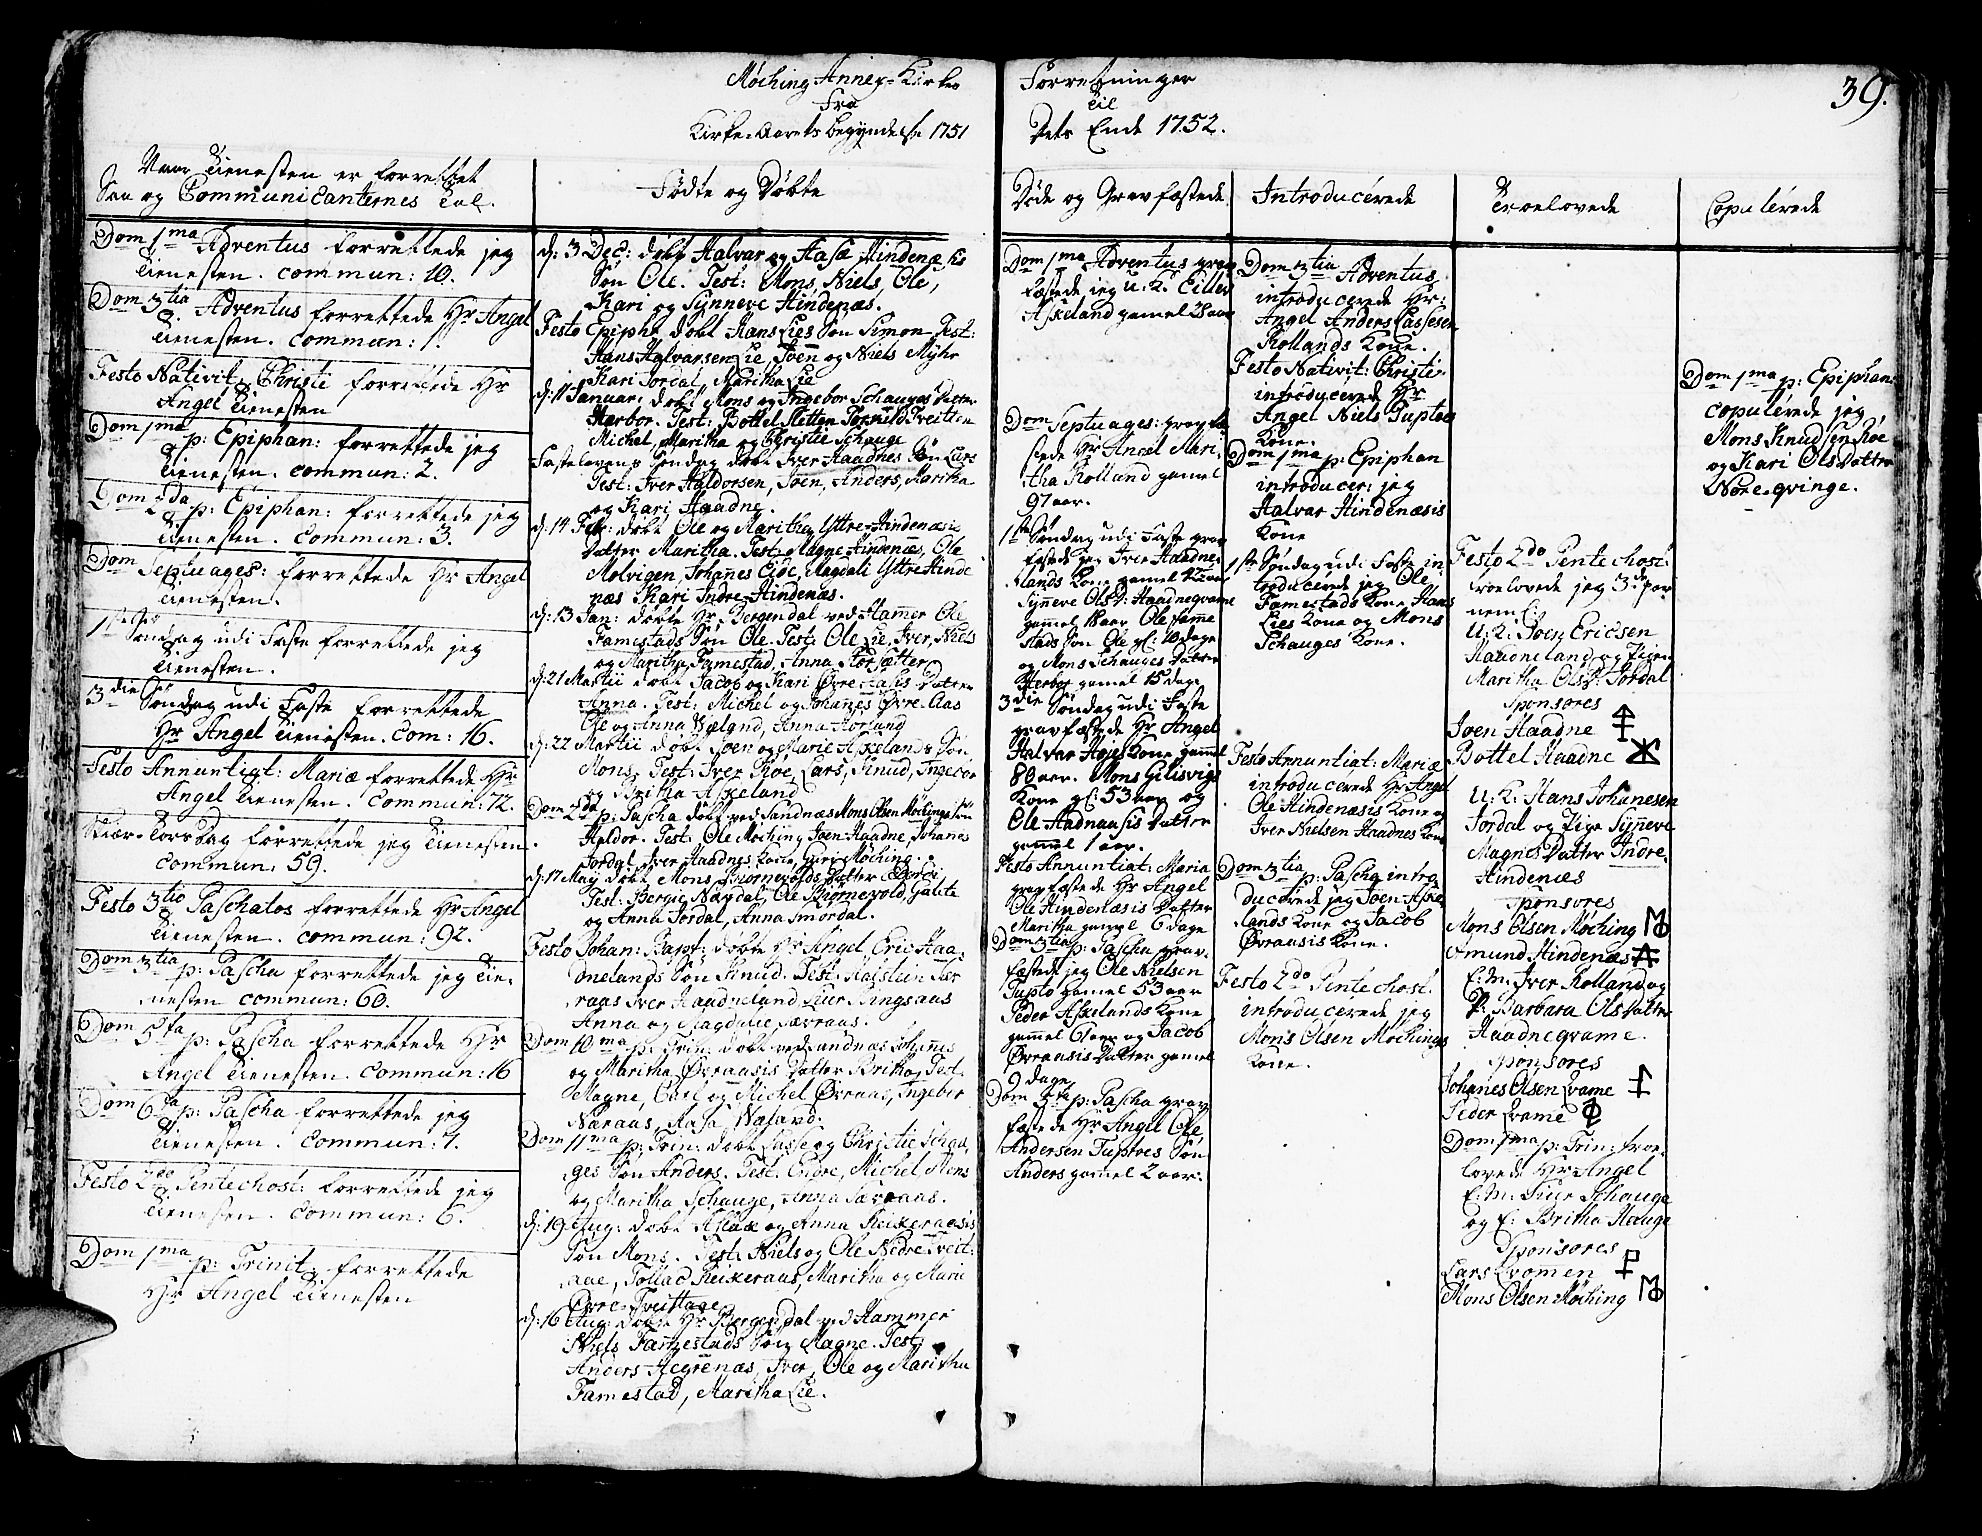 Møching Annex-Kirkes
Fra
Kirke-Aarets begyndelse 1751
Forretninger
til
Dets Ende 1752.
39.
Naar Tienesten er forrettet
Saa og Communicanternes Tal.
Dom 1ma Adventus forrettede jeg
Tienesten. commun: 10.
Dom 3tia Adventus forrettede Hr Angel
Tienesten. commun: 1.
Festo Nativit. Christi forrettede Hr
Angel Tienesten
Dom 1ma p: Epiphan: forrettede jeg
Tienesten. commun: 2.
Dom 2da p: Epiphan: forrettede jeg
Tienesten. commun: 3.
Dom Septuages: forrettede Hr Angel
Tienesten.
1ste Søndag udi Faste forrettede jeg
Tienesten.
3die Søndag udi Faste forrettede
Hr Angel Tienesten. Com: 16.
Festo Annuntiat: Mariæ forrettede Hr
Angel Tienesten. commun: 72.
Skiær-Torsdag forrettede jeg Tienesten.
commun: 59.
Festo 3tio Paschatos forrettede Hr Angel
Tienesten. commun: 92.
Dom 3tia p: Pascha forrettede jeg Tie-
nesten commun: 60.
Dom 5ta p: Pascha forrettede Hr
Angel Tienesten. commun: 16
Dom 6ta p: Pascha forrettede jeg
Tienesten. commun: 7.
Festo 2do Pentechost: forrettede jeg
Tienesten. commun: 6.
Dom 1ma p: Trinit: forrettede
Hr Angel Tienesten
Fødte og Døbte
d: 3 Dec: døbt Halvar og Aasæ Hindenæsis
Søn Ole. Test: Mons, Niels, Ole,
Kari og Synneve Hindenæs.
Festo Epiph: døbt Hans Lies Søn Simon Test:
Hans Halvarsen Lie, Joen og Niels Myhr
Kari Jordal, Maritha Lie
d: 11 Januar: døbt Mons og Ingebor Schauges Datter
Herbor. Test: Bottel Sletten Tveitten
Michel, Maritha og Christie Schauge
Fastelavens Søndag døbt Iver Haadnes Søn Lars
Test: Iver Haldorsen, Joen, Anders, Maritha
og Kari Haadne.
d: 14 Feb: døbt Ole og Maritha Yttre-Hindenæsis
Datter Maritha. Test: Magne Hindenæs, Ole
Molvigen, Johanes Eide, Magdali Yttre Hinde
næs Kari Indre-Hindenæs.
d: 13 Jan: døbte Hr Bergendal ved Hammer Ole
Famestads Søn Ole. Test: Ole Lie, Iver, Niels
og Maritha Famestad, Anna Storsætter
d: 21 Martii døbt Jacob og Kari Øvre Aasis Datter
Anna. Test: Michel og Johanes Øvre-Aas
Ole og Anna Anna
d: 22 Martii døbt Joen og Marie Askelands Søn
Mons, Test: Iver Røe, Lars, Knud, Ingebor
og Britha Askeland
Dom 2da p: Pascha døbt ved Sandnæs Mons Olsen Møchings Søn
Haldor. Test: Ole Møching Joen Haadne, Johanes
Jordal Iver Haadnes Kone, Guri Møching.
d: 17 Maij døbt Mons Biørnevolds Datter
Test: Børge Nordal, Ole Biørnevold,
og Anna Jordal, Anna Imordal.
Festo Johan: Bapt: døbte Hr Angel, Eric Haa-
dnelands Søn Knud. Test: Halsteen Sær
raas Iver Haadneland Siur Kingsaas
Anna og Magdalie Særraas.
Dom 10ma p: Trin: døbt ved Sandnæs Johanes
og Maritha Øvraasis Datter Britha, Test
Magne, Emil og Michel Øvraas, Ingebor
Næraas, Aasa Næsland.
Dom 11ma p: Trin: døbt Lasse og Christie Schau-
ges Søn Anders. Test. Endre, Michel, Mons
og Maritha Schauge, Anna Særaas.
d: 19 Aug: døbt Aslaæ og Anna Reikeraasis
Søn Mons. Test: Niels og Ole Nedre Tveit:
aae, Tollac Reikeraas, Maritha og Marie
Øvre-Tveittaae.
d: 16 Aug: døbte Hr Bergendal ved Hammer
Niels Famestads Søn Magne. Test:
Anders Hegrenæs, Iver, Ole og Maritha
Famestad, Maritha Lie.
Døde og Gravfæstede
Dom 1ma Adventus grav
fæstede jeg U: K: Eiler
Askeland gamel 28 aar
Dom Septuages: gravfæ-
stede Hr Angel Mari
tha Rolland gamel
97 aar.
1ste Søndag udi Faste grav
fæstede jeg Iver Haadne
lands Kone gamel
Synneve Olsd: Haadnegvame
gamel 18 aar Ole Fame
stads Søn Ole gl: 10 dage
og Mons Schauges Datter
Herbor gamel 15 dage
3die Søndag udi Faste
gravfæstede Hr Angel
Halvar Kone gamel
80 aar. Mons Gilsvigs
Kone gl: 53 aar og
Ole Datter
gamel 1 aar.
Festo Annuntiat: Maria
gravfæstede Hr Angel
Ole Hindenæsis Datter
Maritha gamel 6 dage
Dom 3tia p: Pascha grav
fæstede jeg Ole Nielsen
Tupto gamel 53 aar
Peder Askelands Kone
gamel 61 aar og Jacob
Øvraasis Datter gamel
9 dage
Dom 5ta p: Pascha grav
fæstede Hr Angel Ole
Andersen Tuptoes Søn
Anders gamel 2 aar.
Introducérede
Dom 3tia Adventus
introducerede Hr:
Angel Anders Lassesen
Rollands Kone.
Festo Nativit: Christi
introducérede Hr
Angel Niels Tuptoes
Kone.
Dom 1ma p: Epiphan
introducer: jeg
Halvar Hindenæsis
Kone
1ste Søndag udi Faste in
troducerede jeg Ole
Famestads Kone Hans
Lies Kone og Mons
Schauges Kone.
Festo Annuntiat: Mariæ
introducérede Hr Angel
Ole Hindenæsis Kone og
Iver Nielsen Haadnes Kone
Dom 3tia p: Pascha intro
ducérede jeg Joen Aske
lands Kone og Jacob
Øvraasis Kone.
Festo 2do Pentechost.
introducérede jeg
Mons Olsen Møchings
Kone.
Troelovede
Festo 2do Pentechost:
troelovede jeg 3de par
neml:
U: K: Joen Ericsen
Haadneland og Pigen
Maritha Olsd: Jordal
Sponsores
Joen Haadne
Bottel Haadne
U: K: Hans Johanesen
Jordal og Pige Synneve
Magnes Datter Indre.
Hindenæs
Sponsores
Mons Olsen Møching
Omund Hindenæs
E: M: Iver Rolland og
P: Barbara Ols Datter
Haadnegvame.
Sponsores
Johanes Olsen Qvame
Peder Qvame
Dom 1ma p: Trin: troe-
lovede Hr Angel
E: M: Siur Schauge
og E: Britha Hauge
Sponsores
Lars Qvamen
Mons Olsen Møching
Copulérede
Dom 1ma p: Epiphan:
copulérede jeg
Mons Knudsen Røe
og Kari Ols Datter
Nore-qvinge.